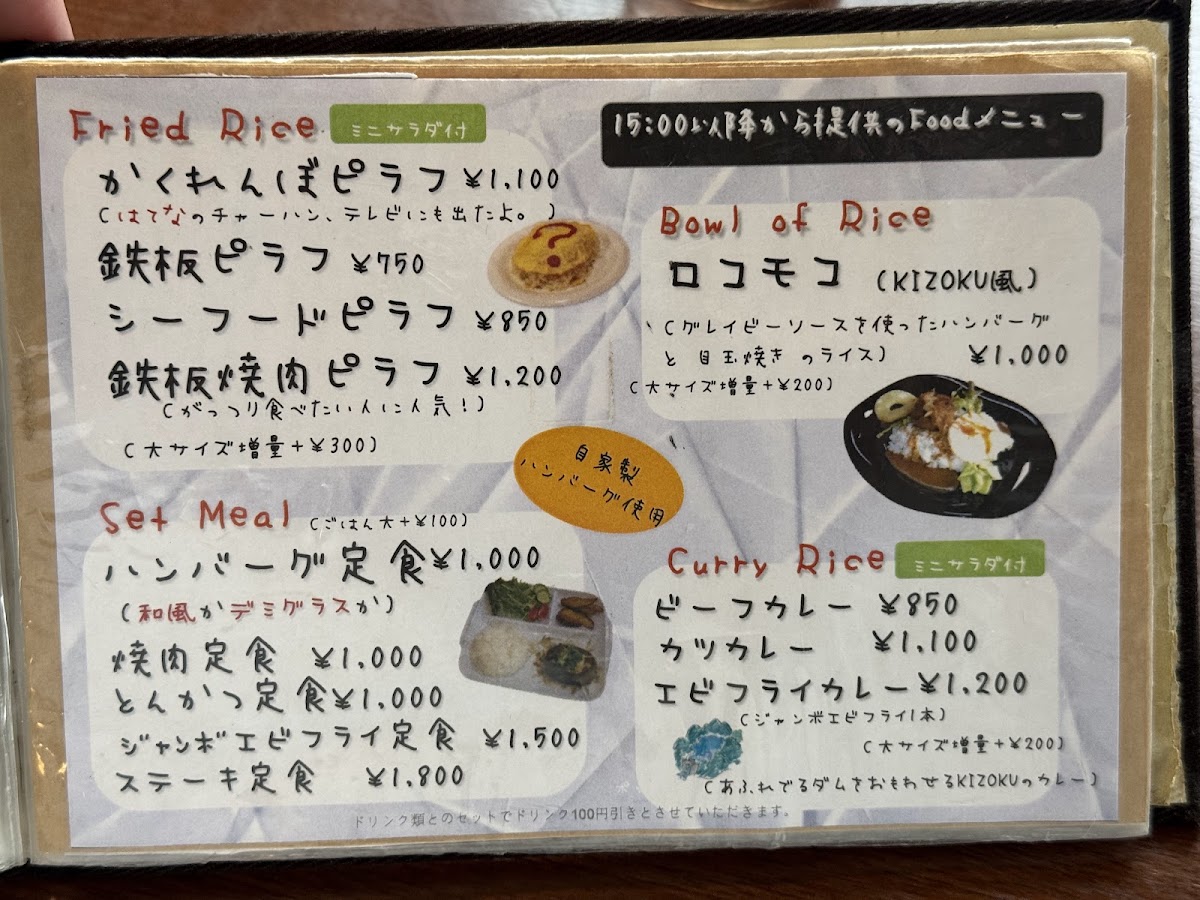 Fried Rice ミニサラダ付
かくれんぼピラフ ¥1,100
(はてなのチャーハン、テレビにも出たよ。)
?
鉄板ピラフ ¥750
シーフードピラフ ¥850
鉄板焼肉ピラフ ¥1,200
(がっつり食べたい人に人気！)
(大サイズ増量+¥300)
15:00以降から提供のFoodメニュー
Bowl of Rice
ロコモコ (KIZOKU風)
(グレイビーソースを使ったハンバーグ
と 目玉焼き のライス) ¥1,000
(大サイズ増量+¥200)
自家製
ハンバーグ使用
Set Meal (ごはん大+¥100)
ハンバーグ定食¥1,000
(和風かデミグラスか)
焼肉定食 ¥1,000
とんかつ定食¥1,000
ジャンボエビフライ定食 ¥1,500
ステーキ定食 ¥1,800
Curry Rice ミニサラダ付
ビーフカレー ¥850
カツカレー ¥1,100
エビフライカレー¥1,200
(ジャンボエビフライ1本)
(大サイズ増量+¥200)
(あふれでるダムをおもわせるKIZOKUのカレー)
ドリンク類とのセットでドリンク100円引きとさせていただきます。